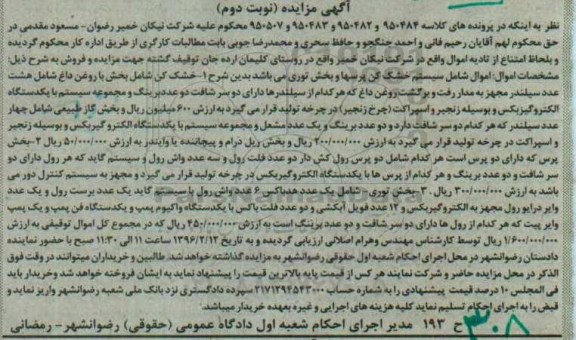 آگهی مزایده (نوبت دوم)
نظر به اینکه در پرونده های کلاسه ۹۵۰۴۸۴ و ۹۵۰۴۸۲ و ۹۵۰۴۸۳ و ۹۵۰۵۰۷ محکوم علیه شرکت نیکان خمیر رضوان- مسعود مقدمی در
حق محکوم لهم آقایان رحیم فانی و احمد جنگجو و حافظ سحری و محمدرضا جویی بابت مطالبات کارگری از طریق اداره کار محکوم گردیده
و بلحاظ امتناع از تادیه اموال واقع در شرکت نیکان خمیر واقع در روستای کلیمان ارده جان توقیف گشته جهت مزایده و فروش به شرح ذیل:
مشخصات اموال: اموال شامل سیستم خشک کن و پرسها و بخش توری می باشد بدین شرح ۱- خشک کن شامل بخش با روغن داغ شامل هشت
عدد سیلندر مجهز به مدار رفت و برگشت روغن داغ که هر کدام از سیلندرها دارای دو سر شافت دو عدد برینگ و مجموعه سیستم با یکدستگاه
الکتروگیربکس و بوسیله زنجیر و اسپراکت (چرخ زنجیر) در چرخه تولید قرار می گیرد به ارزش ۶۰۰ میلیون ریال و بخش گاز طبیعی شامل چهار
عدد سیلندر که هر کدام دو سر شافت دارد و دو عدد برینگ و یک عدد مشعل و مجموعه سیستم با یکدستگاه الکتروگیربکس و بوسیله زنجیر
و اسپراکت در چرخه تولید قرار می گیرد به ارزش ۲۰۰/۰۰۰/۰۰۰ ریال و بخش ریل درام و پیچاننده یا وایندر به ارزش ۵۰/۰۰۰/۰۰۰ ریال ۲-بخش
پرس که دارای دو پرس است هر کدام شامل دو پرس رول کش دار دو عدد فلت رول و سه عدد واش رول و سیستم گاید که هر رول دارای دو
سر شافت و دو عدد برینگ و هر کدام از پرس ها با یکدستگاه الکتروگیربکس در چرخه تولید قرار می گیرد و مجهز به سیستم کنترل دور می
باشد به ارزش ۳۰۰/۰۰۰/۰۰۰ ریال. ۳-بخش توری- شامل یک عدد هدباکس ۶ عدد واش رول با سیستم گاید یک عدد برست رول و یک عدد
وایر درایو رول مجهز به الکتروگیربکس و ۱۲ عدد فویل آبکشی و دو عدد فلت باکس با یکدستگاه واکیوم پمپ و یکدستگاه فن پمپ و یک پمپ
وایر پیت که هر کدام از رول ها دارای دو سر شافت و دو عدد برینگ است به ارزش ۴۵۰/۰۰۰/۰۰۰ ریال که در مجموع کل اموال توقیفی به ارزش
۱/۶۰۰/۰۰۰/۰۰۰ ریال توسط کارشناس مهندس وهرام اصلانی ارزیابی گردیده و به تاریخ ۱۳۹۶/۲/۱۲ ساعت ۱۱ الی ۱۱:۳۰ صبح با حضور نماینده
دادستان رضوانشهر در محل اجرای احکام شعبه اول حقوقی رضوانشهر به مزایده گذاشته خواهد شد. طالبین و خریداران میتوانند در وقت فوق
الذکر در محل مزایده حاضر و شرکت نمایند هر کس از قیمت پایه بالاترین قیمت را پیشنهاد نماید به ایشان فروخته خواهد شد وخریدار باید
فی المجلس ۱۰ درصد قیمت پیشنهادی را به شماره حساب ۲۱۷۱۲۹۴۵۴۳۰۰۰ سپرده دادگستری نزد بانک ملی شعبه رضوانشهر واریز نماید و
قبض را به اجرای احکام تسلیم نماید کلیه هزینه های اجرایی و غیره بعهده خریدار میباشد.
ح ۱۹۳ مدیر اجرای احکام شعبه اول دادگاه عمومی (حقوقی) رضوانشهر- رمضانی
۳۰۸